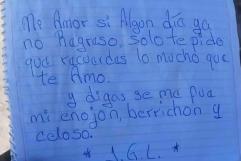 Mi Amor si Algun día ya
no Ragraso, solo te pido
qua racuardas lo mucho que
te Amo.
y digas se ma fua
mi enojon, berrichon y
celoso.
* J.G.L. *